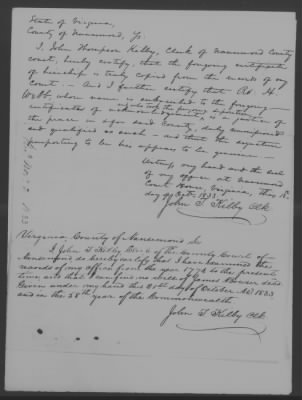 State of Virginia,
County of Nansemond, To:
I, John Thompson Kilby, Clerk of Nansemond County
Court, hereby certify, that the forgoing certificate
of heirship is truly copied from the records of my
Court. — And I further certify that Ro. H.
Webb, whose name is subscribed to the forgoing
certificates of
the peace in afor said County, duly commissioned
and qualified as such – and that the signature
purporting to be his appears to be genuine –
Witness my hand and the seal
of my office at Nansemond
Court House, Virginia, this 18
day of Octr. 1833
John T. Kilby Clk
Virginia, County of Nansemond Sc
I John T Kilby Clerk of the County Court of
Nansemond do hereby certify that I have examined the
records of my office from the year 1774 to the present
time and that I can find no will of James Bowser decd
Given under my hand this 20th day of October A.D. 1833
and in the 58th year of the Commonwealth
John T Kilby Clk